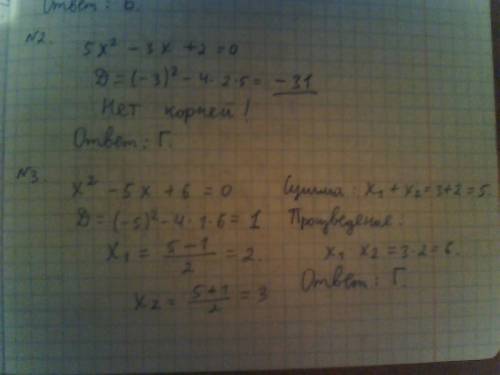 Ответ: Б.
№2.
5x² - 3x + 2 = 0
D = (-3)² - 4 · 2 · 5 = -31
Нет корней!
Ответ: Г.
№3
x² - 5x + 6 = 0
D = (-5)² - 4 · 1 · 6 = 1
x₁ = (5-1)/2 = 2.
x₂ = (5+1)/2 = 3
Сумма: x₁ + x₂ = 3+2 = 5.
Произведение:
x₁ x₂ = 3·2 = 6.
Ответ: Г.